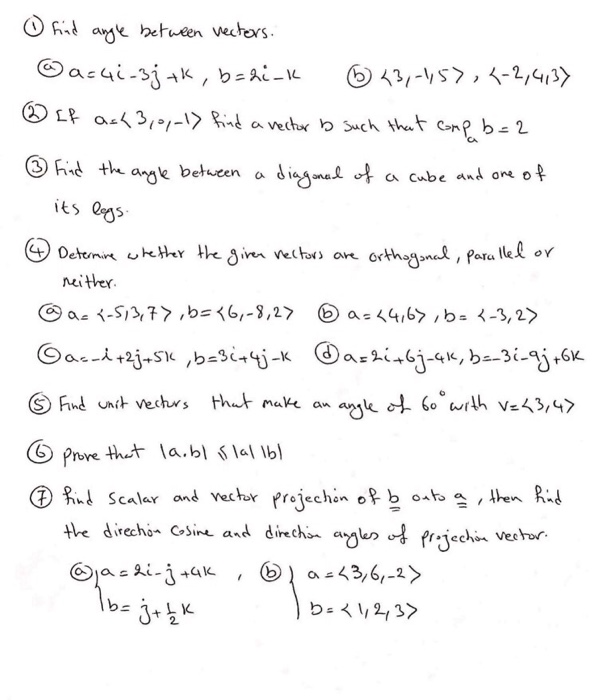 ① Find angle between vectors.
ⓐ a=4i-3j+k, b=2i-k ⓑ <3,-1,5>, <-2,4,3>
② If a=<3,0,-1> find a vector b such that comp_a b=2
③ Find the angle between a diagonal of a cube and one of
its legs.
④ Determine whether the given vectors are orthogonal, parallel or
neither.
ⓐ a=<-5,3,7>, b=<6,-8,2> ⓑ a=<4,6>, b=<-3,2>
ⓒ a=-i+2j+5k, b=3i+4j-k ⓓ a=2i+6j-4k, b=-3i-9j+6k
⑤ Find unit vectors that make an angle of 60° with v=<3,4>
⑥ prove that |a.b| ≤ |a| |b|
⑦ find scalar and vector projection of b onto a, then find
the direction cosine and direction angles of projection vector.
ⓐ a=2i-j+4k, ⓑ a=<3,6,-2>
b=j+½k b=<1,2,3>